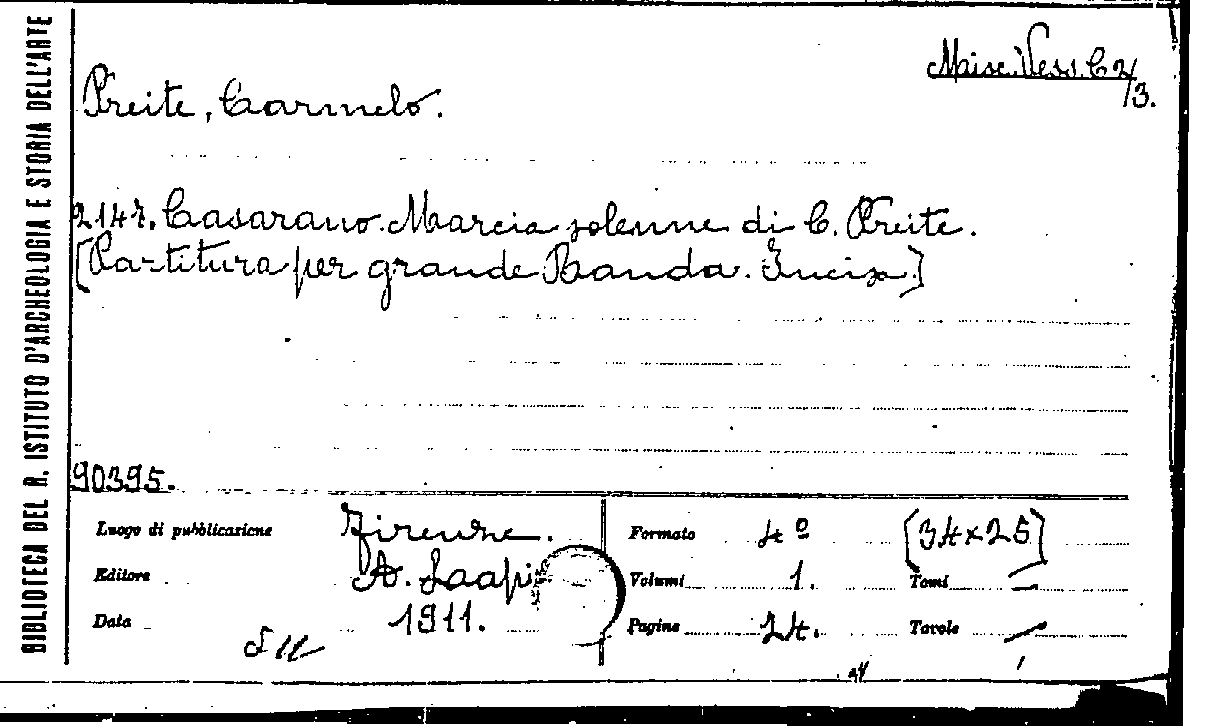 BIBLIOTECA DEL R. ISTITUTO D'ARCHEOLOGIA E STORIA DELL'ARTE
Misc. Vess. C 2/3.
Preite, Carmelo.
2147. Casarano. Marcia solenne di C. Preite.
[Partitura per grande Banda. Incisa]
90395.
Luogo di pubblicazione Firenze.
Editore A. Lapi
Data 1911.
Formato 4º [34×25]
Volumi 1. Tomi —
Pagine 24. Tavole —